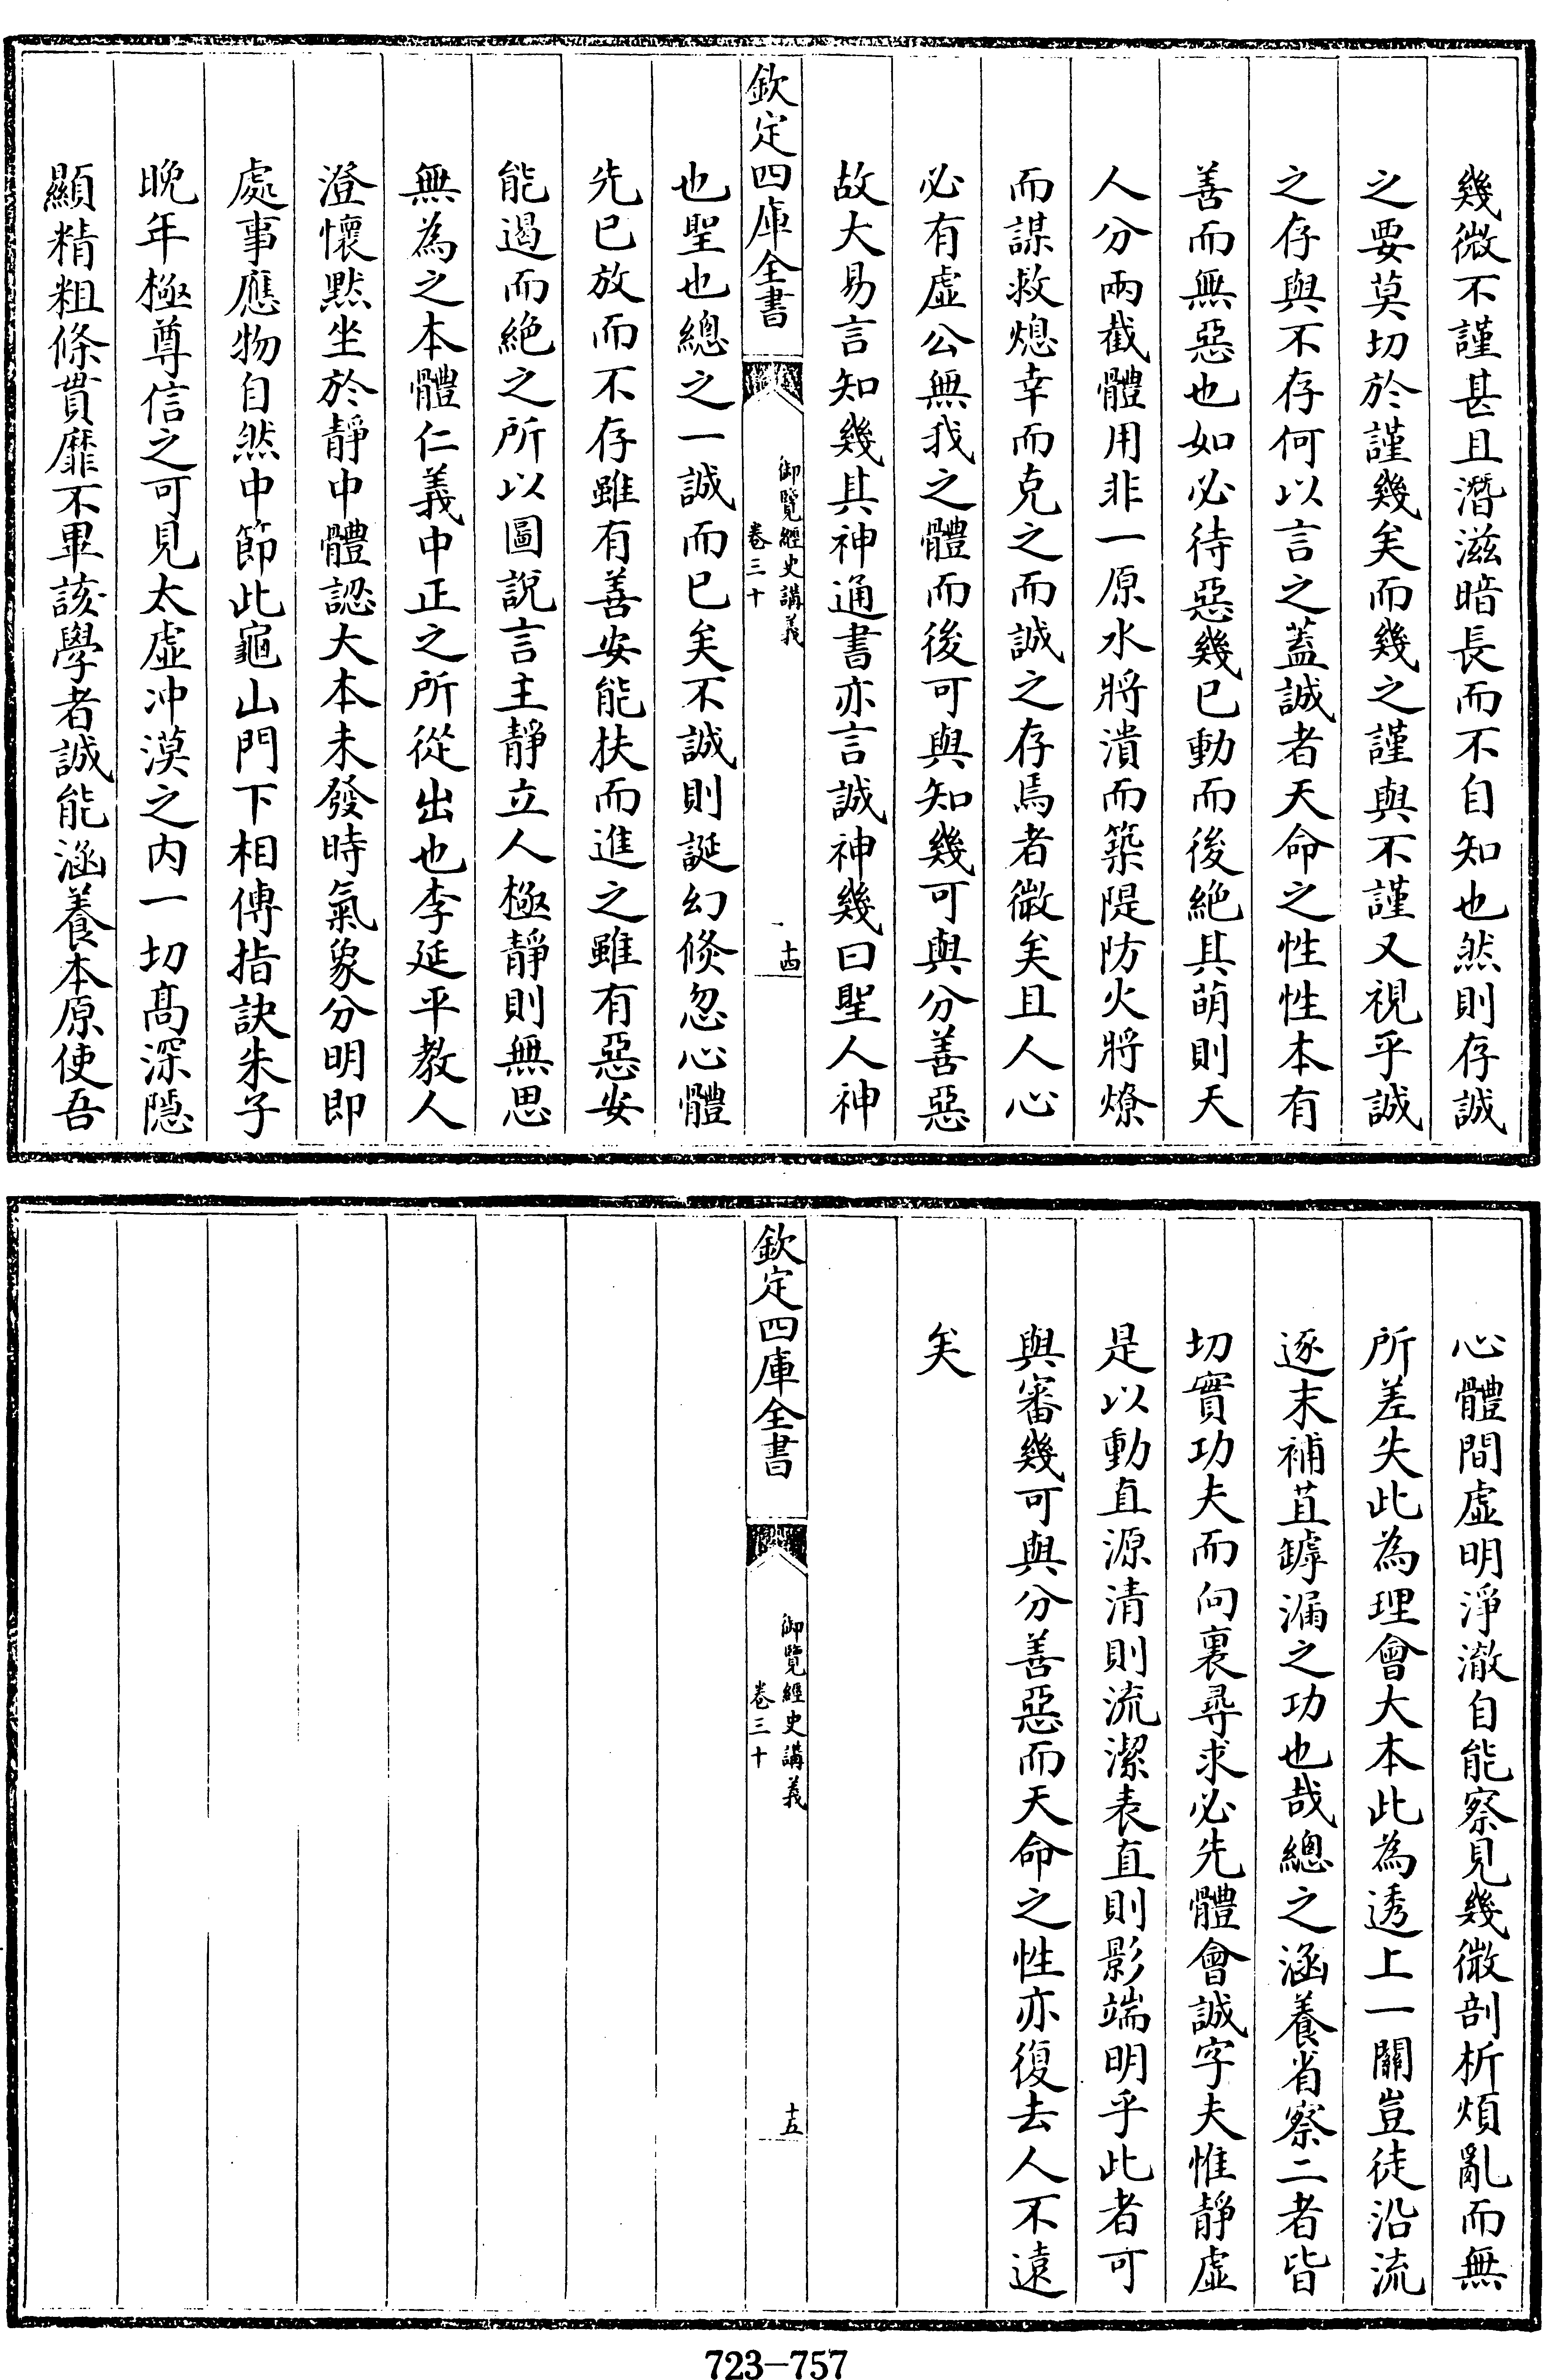 幾微不謹甚且潛滋暗長而不自知也然則存誠
之要莫切於謹幾矣而幾之謹與不謹又視乎誠
之存與不存何以言之蓋誠者天命之性性本有
善而無惡也如必待惡幾已動而後絶其萌則天
人分兩截體用非一原水將潰而築隄防火將燎
而謀救熄幸而克之而誠之存焉者微矣且人心
必有虛公無我之體而後可與知幾可與分善惡
故大易言知幾其神通書亦言誠神幾曰聖人神
欽定四庫全書
御覽經史講義
卷三十
十四
也聖也總之一誠而已矣不誠則誕幻倐忽心體
先已放而不存雖有善安能扶而進之雖有惡安
能遏而絶之所以圖說言主靜立人極靜則無思
無為之本體仁義中正之所從出也李延平教人
澄懷黙坐於靜中體認大本未發時氣象分明即
處事應物自然中節此龜山門下相傳指訣朱子
晚年極尊信之可見太虛冲漠之内一切髙深隱
顯精粗條貫靡不畢該學者誠能涵養本原使吾
心體間虛明淨澈自能察見幾微剖析煩亂而無
所差失此為理會大本此為透上一關豈徒沿流
逐末補苴罅漏之功也哉總之涵養省察二者皆
切實功夫而向裏尋求必先體會誠字夫惟靜虛
是以動直源清則流潔表直則影端明乎此者可
與審幾可與分善惡而天命之性亦復去人不遠
矣
欽定四庫全書
御覽經史講義
卷三十
十五
723-757